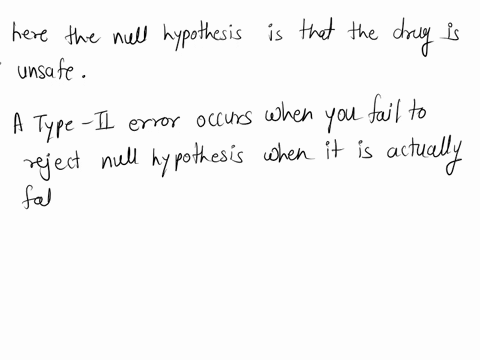 here the null hypothesis is that the drug is
unsafe.
A Type-II error occurs when you fail to
reject null hypothesis when it is actually
fal